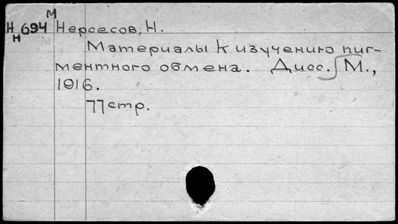 М
Н 694 Нерсесов, Н.
Н
Материалы к изучению пиг-
ментного обмена. Дисс. М.,
1916.
77 стр.